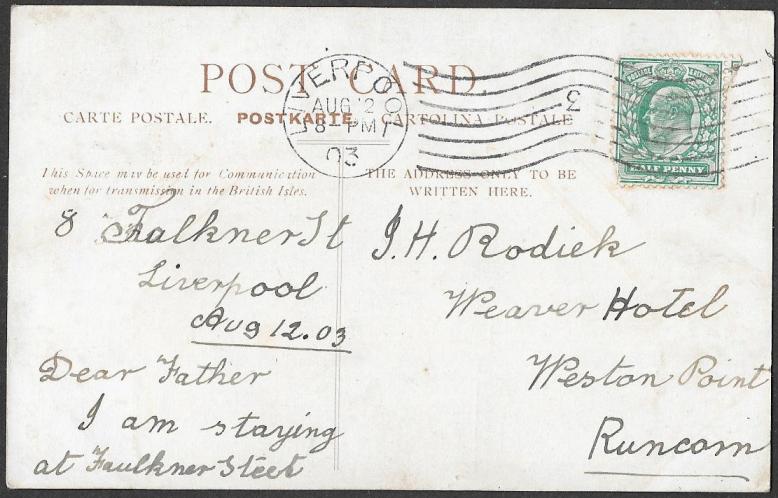 POST CARD.
CARTE POSTALE. POSTKARTE. CARTOLINA POSTALE
LIVERPOOL
AUG 12
8 - PM
03
HALF PENNY
This Space may be used for Communication
when for transmission in the British Isles.
THE ADDRESS ONLY TO BE
WRITTEN HERE.
8 Falkner St
Liverpool
Aug 12.03
Dear Father
I am staying
at Faulkner Steet
J.H. Rodick
Weaver Hotel
Weston Point
Runcorn